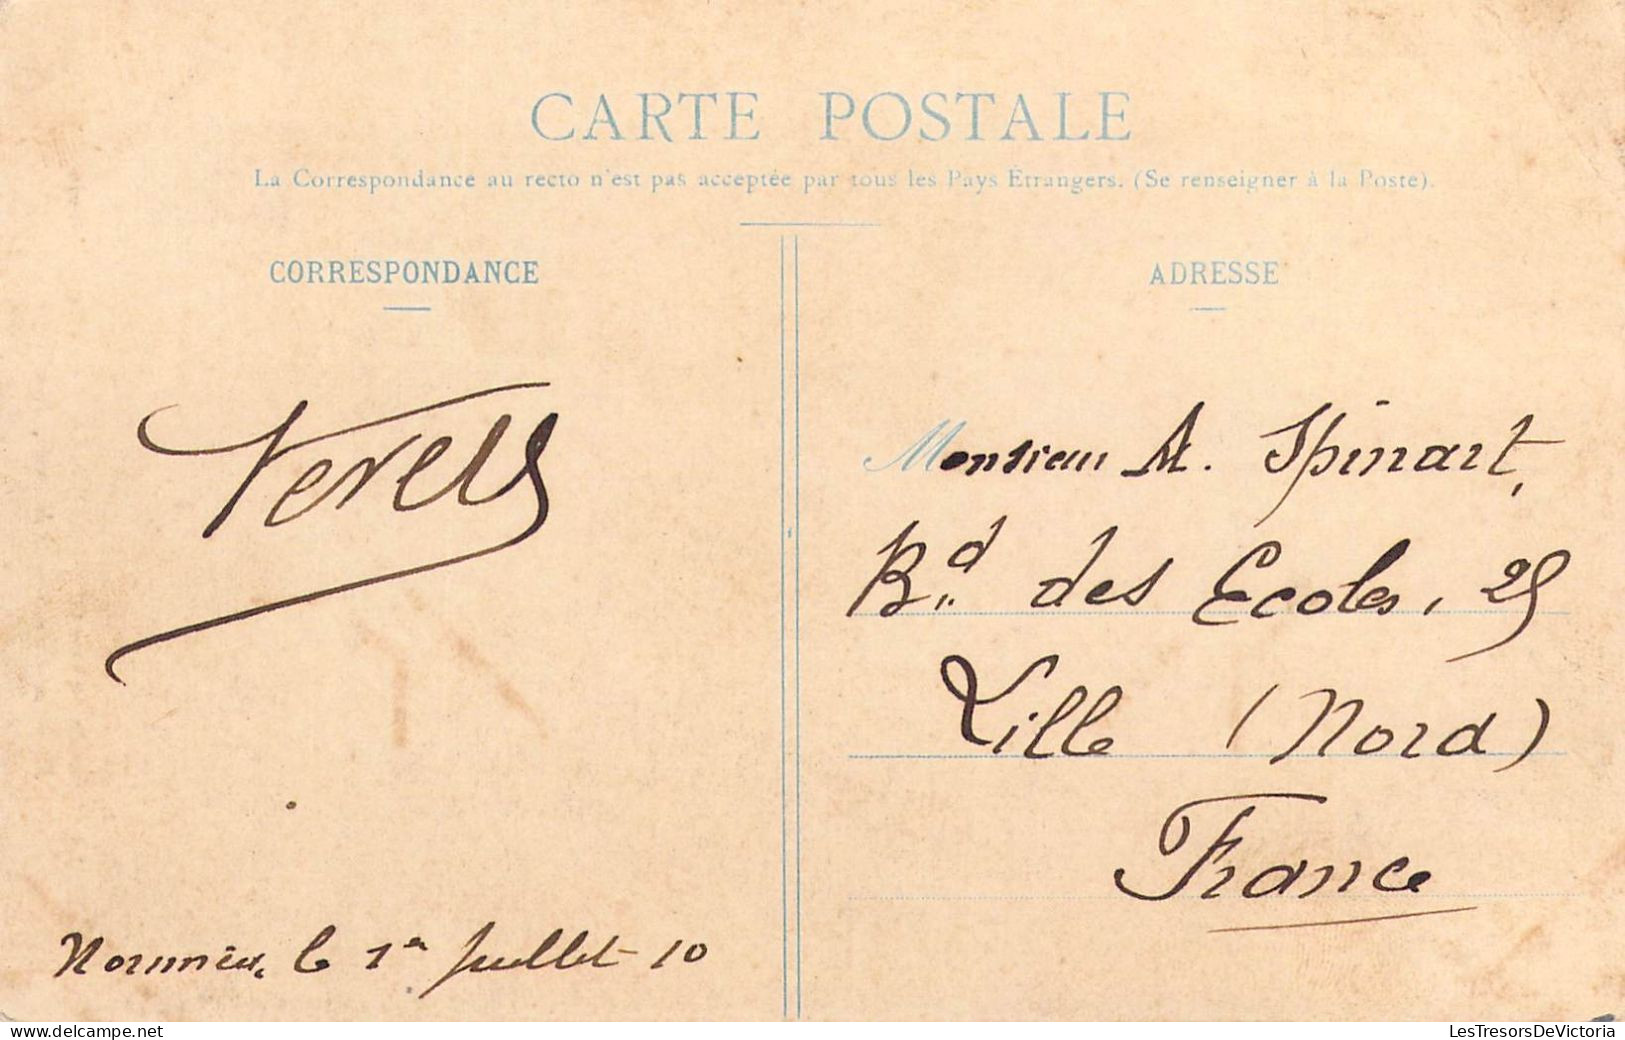 CARTE POSTALE
La Correspondance au recto n'est pas acceptée par tous les Pays Étrangers. (Se renseigner à la Poste).
CORRESPONDANCE
ADRESSE
Monsieur A. Spinart,
Bd des Ecoles, 25
Lille (Nord)
France
le 1er Juillet 10
delcampe.net
LesTresorsDeVictoria